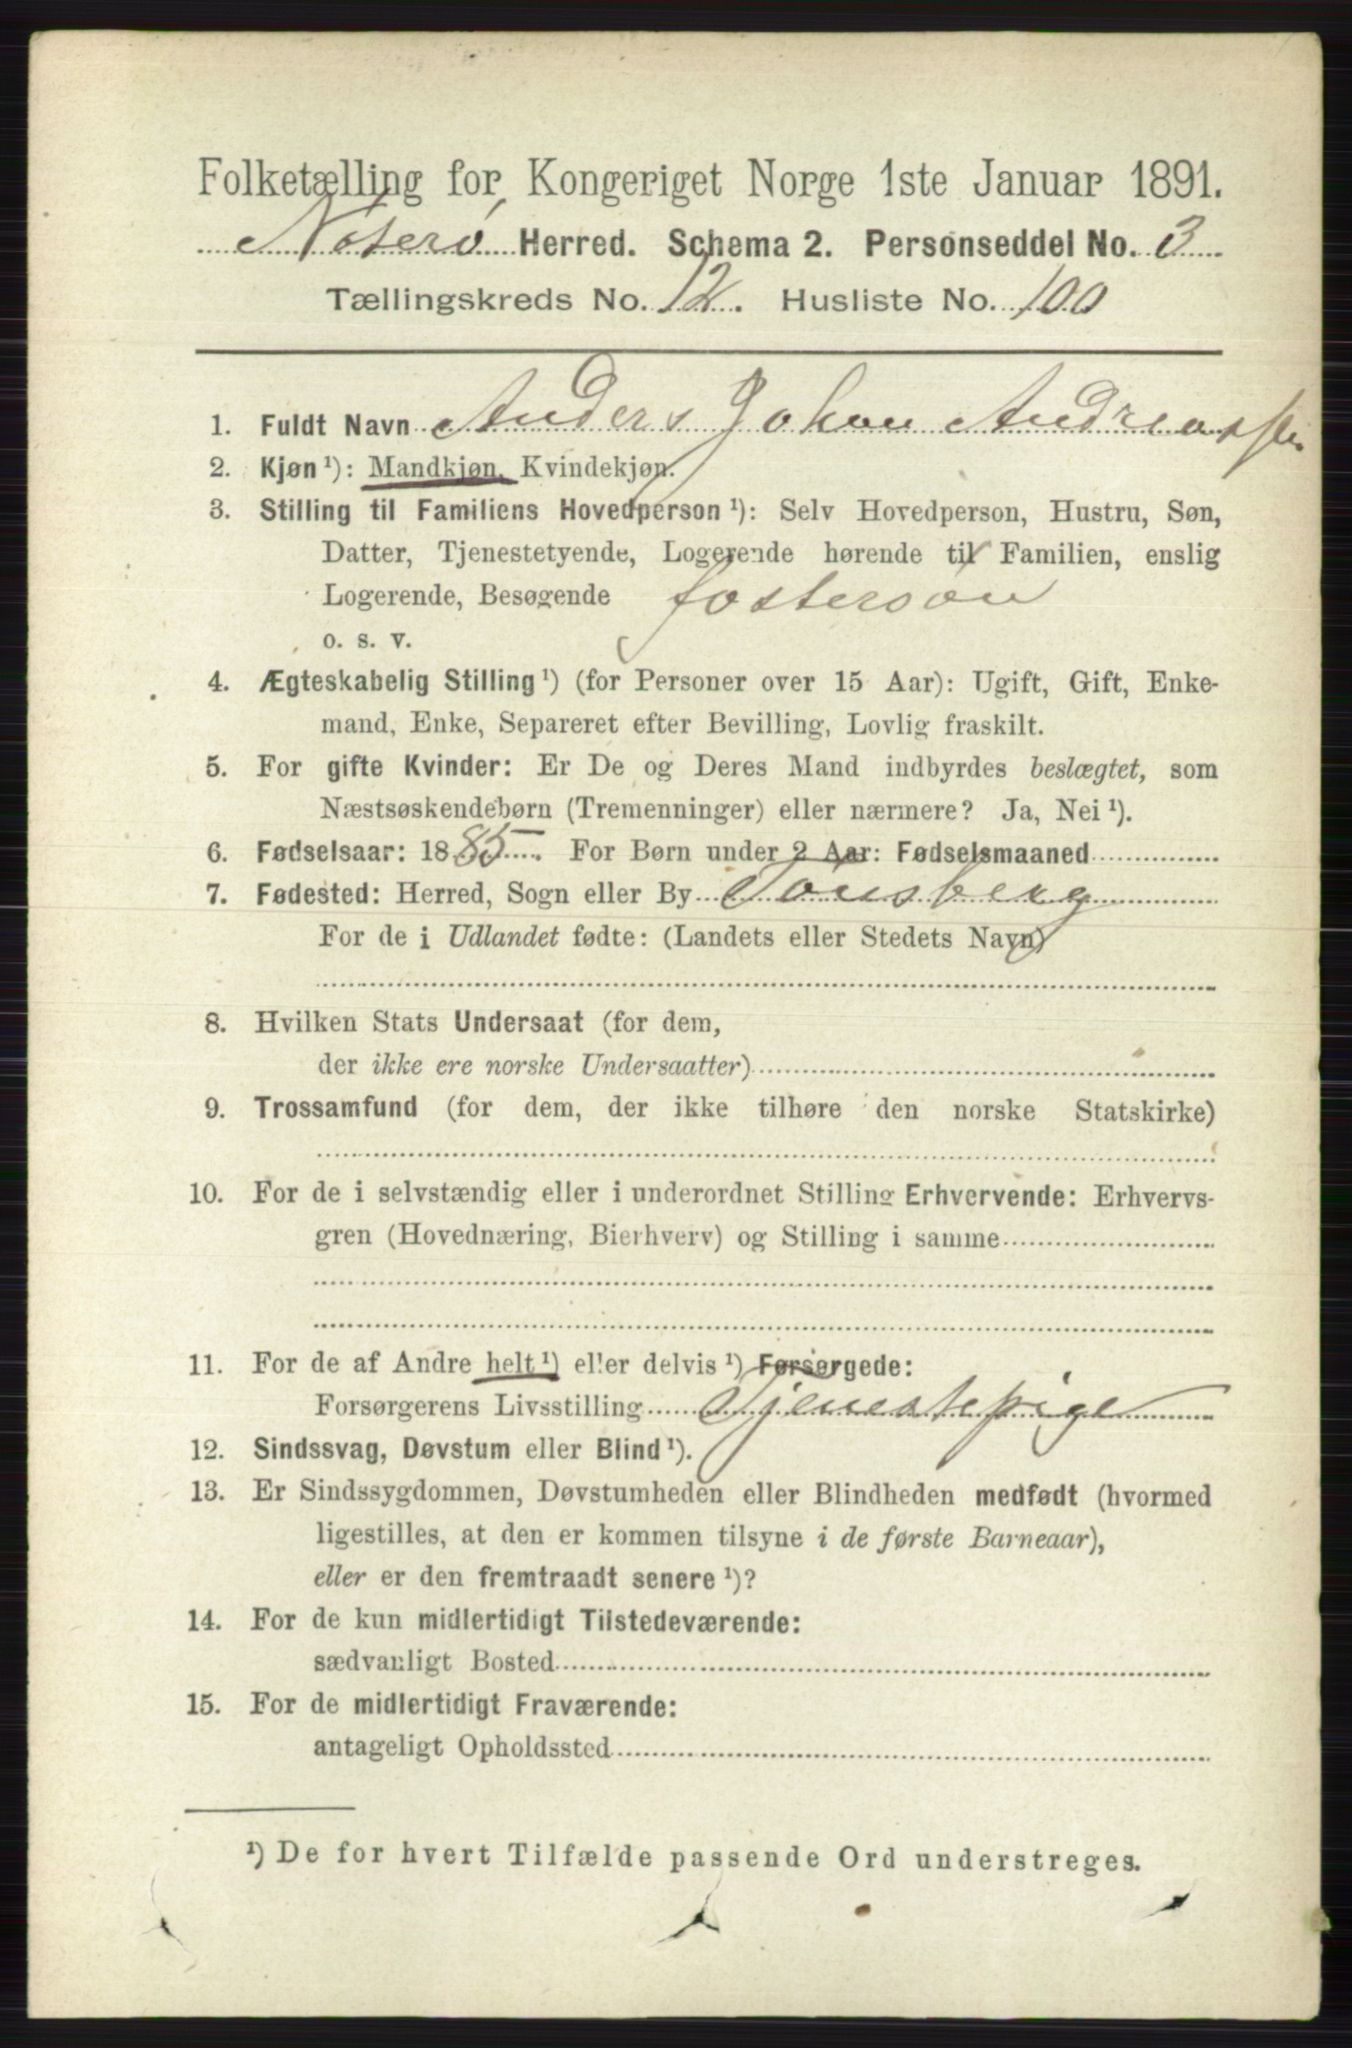 Folketælling for Kongeriget Norge 1ste Januar 1891.
Nøterø Herred. Schema 2. Personseddel No. 3
Tællingskreds No. 12. Husliste No. 100
1. Fuldt Navn Anders Johan Andreassen
2. Kjøn ¹): Mandkjøn, Kvindekjøn.
3. Stilling til Familiens Hovedperson ¹): Selv Hovedperson, Hustru, Søn,
Datter, Tjenestetyende, Logerende hørende til Familien, enslig
Logerende, Besøgende fostersøn
o. s. v.
4. Ægteskabelig Stilling ¹) (for Personer over 15 Aar): Ugift, Gift, Enke-
mand, Enke, Separeret efter Bevilling, Lovlig fraskilt.
5. For gifte Kvinder: Er De og Deres Mand indbyrdes beslægtet, som
Næstsøskendebørn (Tremenninger) eller nærmere? Ja, Nei ¹).
6. Fødselsaar: 1885. For Børn under 2 Aar: Fødselsmaaned
7. Fødested: Herred, Sogn eller By Tønsberg
For de i Udlandet fødte: (Landets eller Stedets Navn)
8. Hvilken Stats Undersaat (for dem,
der ikke ere norske Undersaatter)
9. Trossamfund (for dem, der ikke tilhøre den norske Statskirke)
10. For de i selvstændig eller i underordnet Stilling Erhvervende: Erhvervs-
gren (Hovednæring, Bierhverv) og Stilling i samme
11. For de af Andre helt ¹) eller delvis ¹) Forsørgede:
Forsørgerens Livsstilling Tjenestepige
12. Sindssvag, Døvstum eller Blind ¹).
13. Er Sindssygdommen, Døvstumheden eller Blindheden medfødt (hvormed
ligestilles, at den er kommen tilsyne i de første Barneaar),
eller er den fremtraadt senere ¹)?
14. For de kun midlertidigt Tilstedeværende:
sædvanligt Bosted
15. For de midlertidigt Fraværende:
antageligt Opholdssted
¹) De for hvert Tilfælde passende Ord understreges.